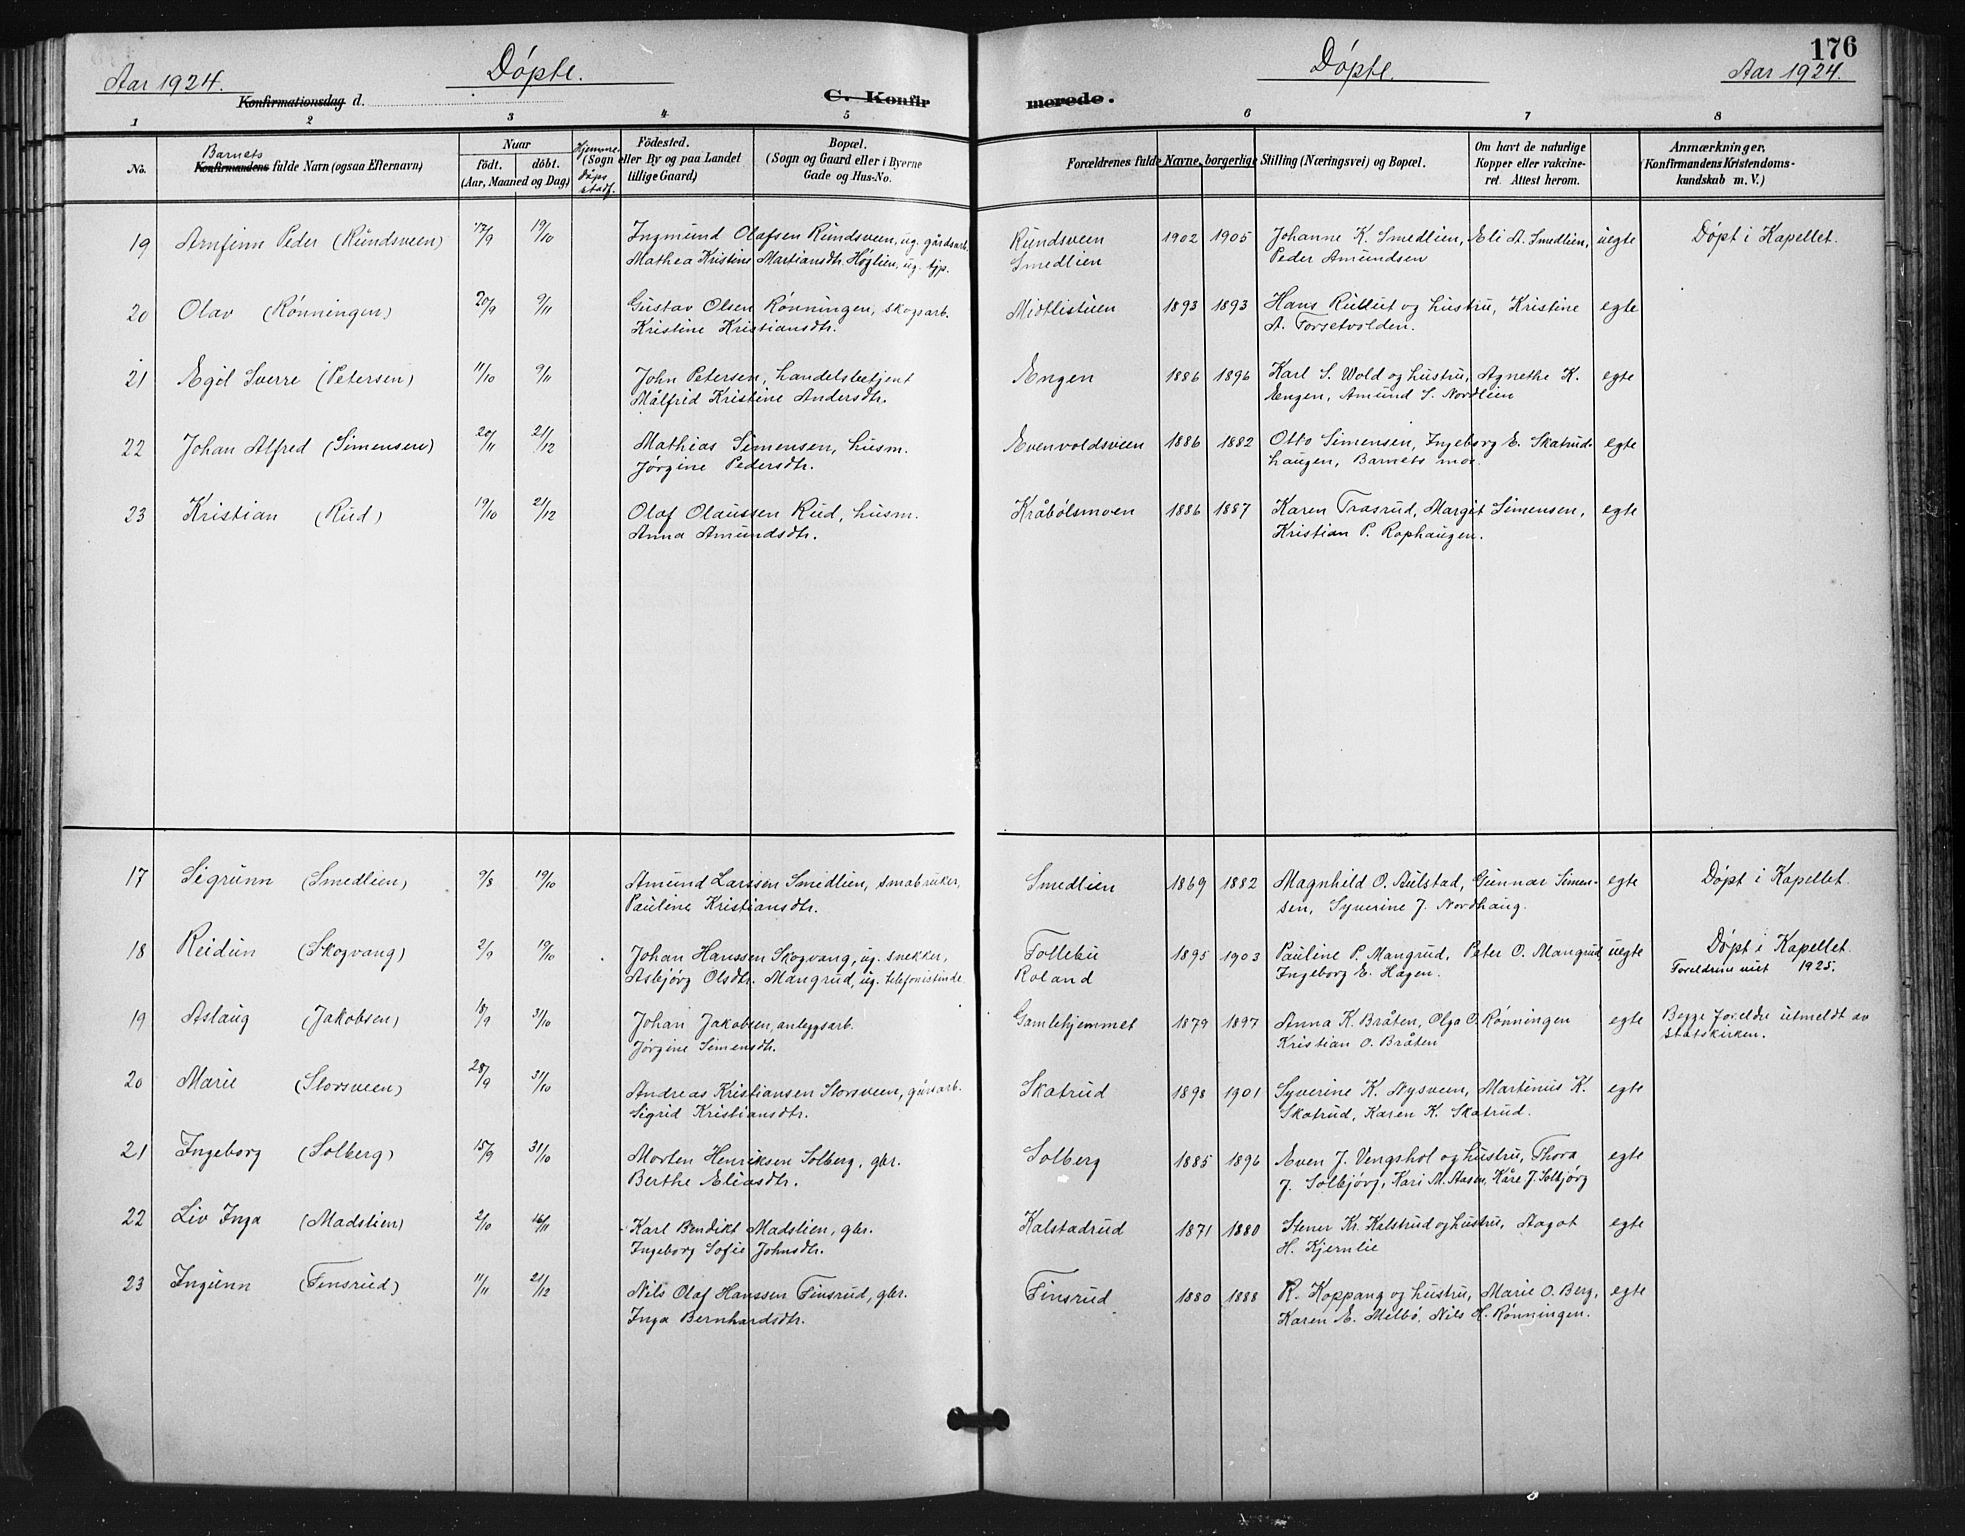 176
Aar 1924. Döpte. Döpte. Aar 1924.
Konfirmationsdag d. C. Konfir merede.
1 2 3 4 5 6 7 8
No. Barnets Konfirmandens fulde Navn (ogsaa Efternavn) Naar födt. döbt. (Aar, Maaned og Dag) Hjemme døpt Födested. (Sogn eller By og paa Landet tillige Gaard) Bopæl. (Sogn og Gaard eller i Byerne Gade og Hus-No. Forældrenes fulde Navne, borgerlige Stilling (Næringsvei) og Bopæl. Om havt de naturlige Kopper eller vakcineret. Attest herom. Anmærkninger, (Konfirmandens Kristendomskundskab m. V.)
19 Arnfinn Peder (Rundsveen) 17/9 19/10 Ingmund Olafsen Rundsveen, ug. gårdsarb. Rundsveen 1902 1905 Johanne K. Smedlien, Eli A. Smedlien, uegte Døpt i Kapellet.
Mathea Kristine Martiansdtr. Høglien, ug. tjp. Smedlien Peder Amundsen
20 Olav (Rønningen) 20/9 9/11 Gustav Olsen Rønningen, skogsarb. Midtlistuen 1893 1893 Hans Ruttut og hustru, Kristine egte
Kristine Kristiansdtr. A. Forsetvolden.
21 Egil Sverre (Petersen) 11/10 9/11 John Petersen, handelsbetjent Engen 1886 1896 Karl S. Wold og hustru, Agnethe K. egte
Målfrid Kristine Andersdtr. Engen, Amund S. Nordlien
22 Johan Alfred (Simensen) 20/11 21/12 Mathias Simensen, husm. Evenvoldsveen 1886 1882 Otto Simensen, Ingeborg E. Skatrud- egte
Jørgine Pedersdtr. haugen, Barnets mor.
23 Kristian (Rud) 19/10 21/12 Olaf Olaussen Rud, husm. Kråbølsmoen 1886 1887 Karen Trosrud, Margit Simensen, egte
Anna Amundsdtr. Kristian P. Rophaugen.
17 Sigrunn (Smedlien) 9/8 19/10 Amund Larssen Smedlien, småbruker, Smedlien 1869 1882 Magnhild O. Aulstad, Gunnar Simen- egte Døpt i Kapellet.
Pauline Kristiansdtr. sen, Syverine J. Nordhaug.
18 Reidun (Skogvang) 2/9 19/10 Johan Hanssen Skogvang, ug. snekker, Follebu 1895 1903 Pauline P. Mangrud, Peter O. Mangrud uegte Døpt i Kapellet.
Asbjørg Olsdtr. Mangrud, ug. telefonistinde. Roland Ingeborg E. Hagen. Foreldrene viet 1925.
19 Aslaug (Jakobsen) 18/9 31/10 Johan Jakobsen, anleggsarb. Gamlehjemmet 1879 1897 Anna K. Bråten, Olga O. Rønningen egte Begge foreldre utmeldt av
Jørgine Simensdtr. Kristian O. Bråten statskirken.
20 Marie (Storsveen) 28/9 31/10 Andreas Kristiansen Storsveen, gårsarb. Skatrud 1898 1901 Syverine K. Nysveen, Martinus K. egte
Sigrid Kristiansdtr. Skatrud, Karen K. Skatrud.
21 Ingeborg (Solberg) 15/9 31/10 Morten Henriksen Solberg, gbr. Solberg 1885 1896 Even J. Vengshol og hustru, Thora egte
Berthe Eliasdtr. J. Solbjørg, Kari M. Aasen, Kåre J. Solbjørg
22 Liv Inga (Madslien) 2/10 16/11 Karl Bendikt Madslien, gbr. Kalstadrud 1871 1880 Stener Kr. Kilstrud og hustru, Aagot egte
Ingeborg Sofie Johnsdtr. H. Kjernlie
23 Ingunn (Finsrud) 11/11 21/12 Nils Olaf Hanssen Finsrud, gbr. Finsrud 1880 1888 R. Koppang og hustru, Marie O. Berg, egte
Inga Bernhardsdtr. Karen E. Melbø, Nils H. Rønningen.